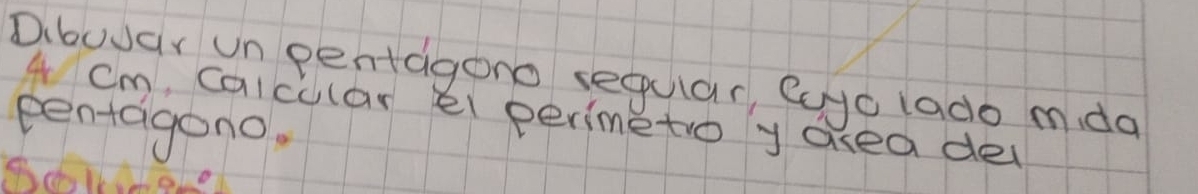 Dibujar un pentágono regular, cuyo lado mida
4 cm. Calcular el perímetro y área del
pentágono.
Solución